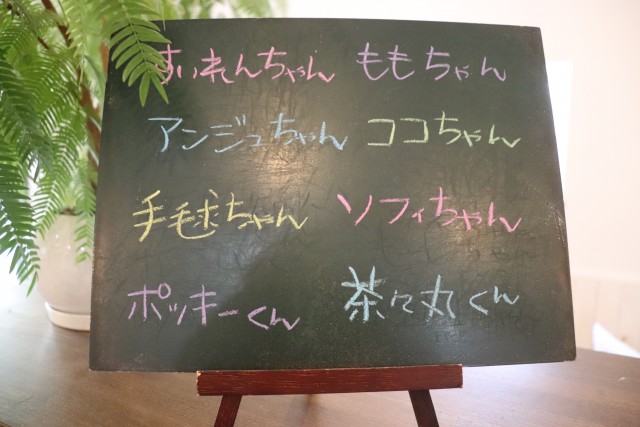 すいれんちゃん ももちゃん
アンジュちゃん ココちゃん
手毬ちゃん ソフィちゃん
ポッキーくん 茶々丸くん